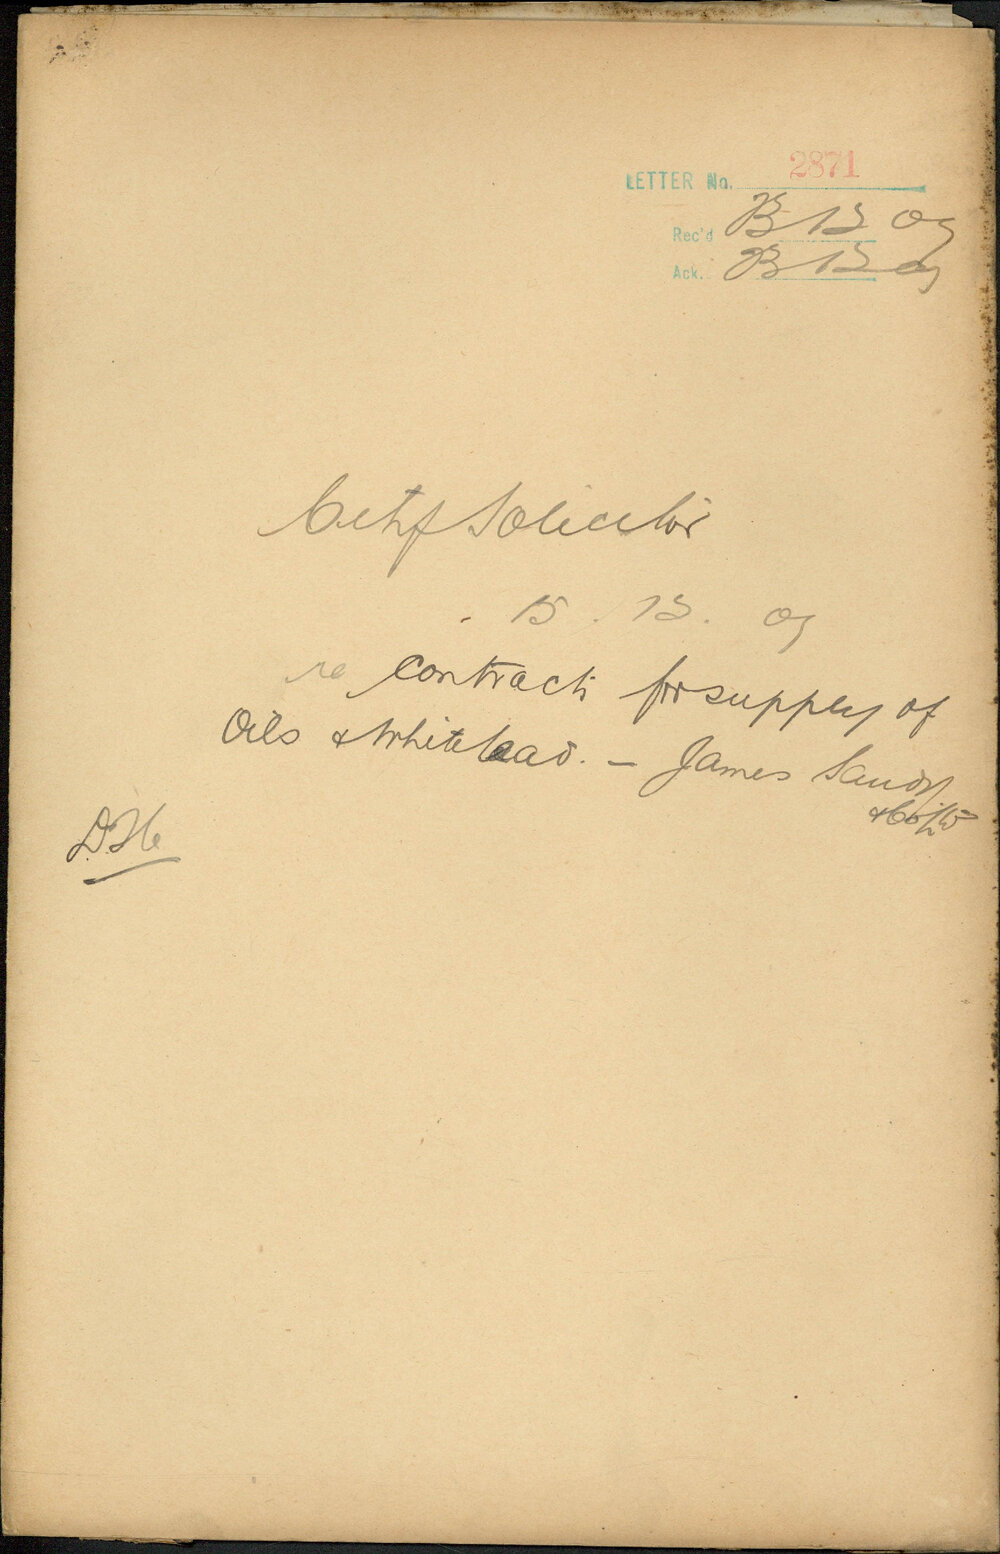 LETTER No. 2871
Rec'd 13 09
Ack. 13 09
City Solicitor
15. 13. 09
re contract for supply of
Oils & White lead. - James Sandy
& Co Ltd